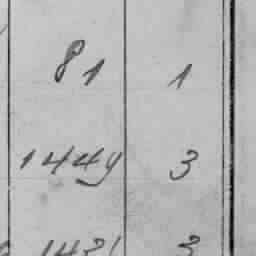 81 1
1449 3
1431 3